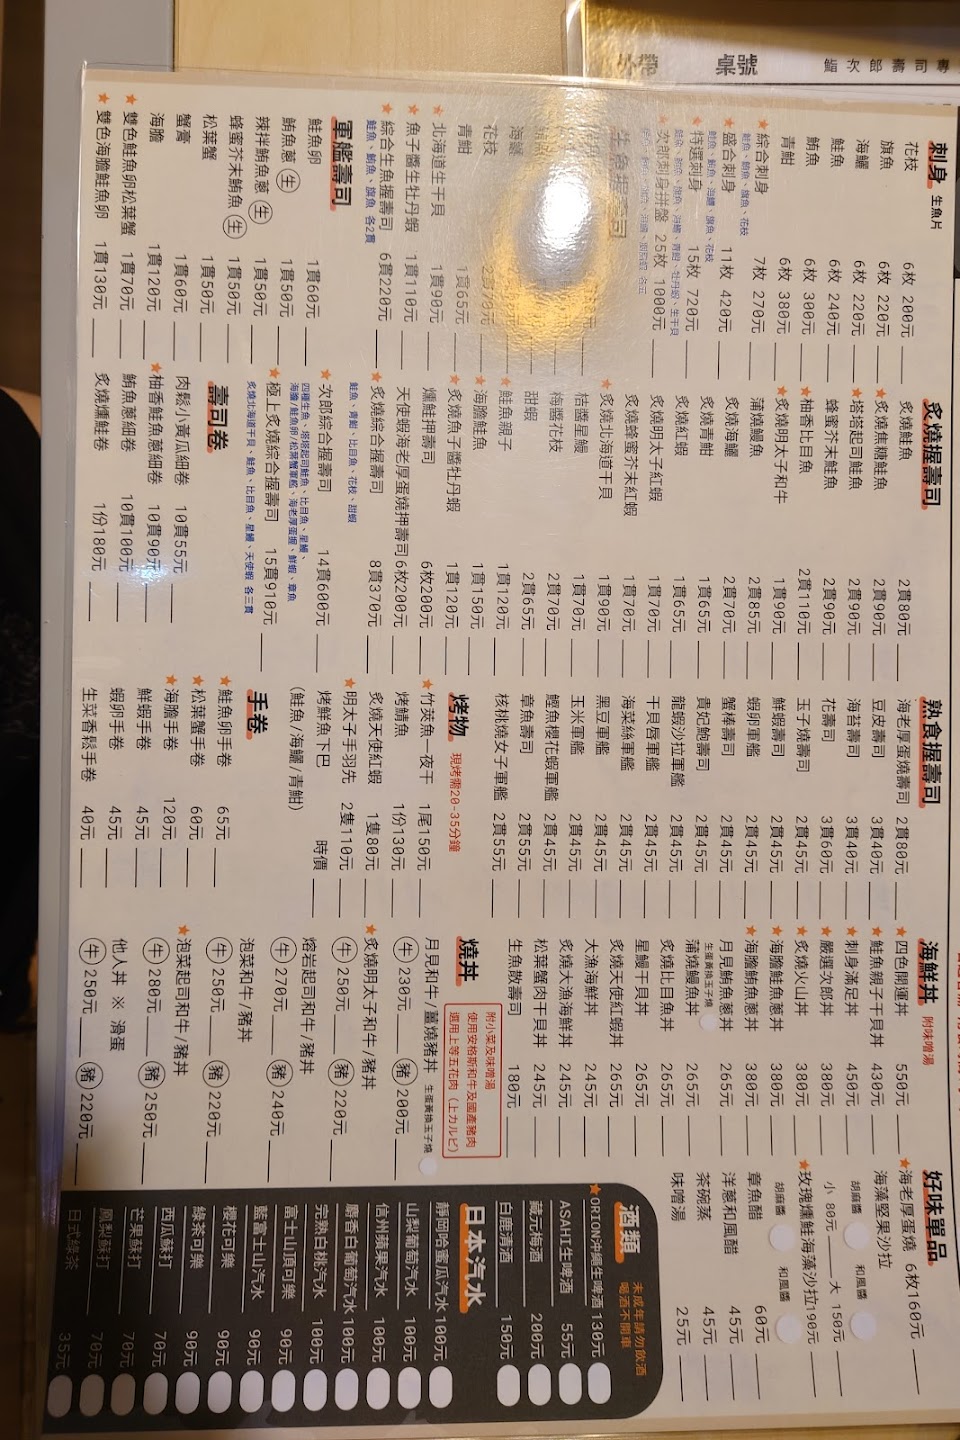 外帶
桌號
鯔次郎壽司專
刺身 生魚片
花枝 6枚 200元
旗魚 6枚 220元
海鱺 6枚 220元
鮭魚 6枚 240元
鮪魚 6枚 300元
青魽 6枚 380元
★綜合刺身 7枚 270元
鮭魚、鮪魚、旗魚、花枝
★盛合刺身 11枚 420元
鮭魚、鮪魚、海鱺、旗魚、花枝
★特選刺身 15枚 720元
★次郎刺身拼盤 25枚 1000元
生魚握壽司
海鱺
花枝 2貫70元
青魽 1貫65元
★北海道生干貝 1貫90元
★魚子醬生牡丹蝦 1貫110元
★綜合生魚握壽司 6貫220元
鮭魚、鮪魚、旗魚 各2貫
軍艦壽司
鮭魚卵 1貫60元
鮪魚蔥 生 1貫50元
辣拌鮪魚蔥 生 1貫50元
蜂蜜芥末鮪魚 生 1貫50元
松葉蟹 1貫50元
蟹膏 1貫60元
海膽 1貫120元
★雙色鮭魚卵松葉蟹 1貫70元
★雙色海膽鮭魚卵 1貫130元
炙燒握壽司
炙燒鮭魚 2貫80元
★炙燒焦糖鮭魚 2貫90元
★塔塔起司鮭魚 2貫90元
蜂蜜芥末鮭魚 2貫90元
★柚香比目魚 2貫110元
★炙燒明太子和牛 1貫90元
蒲燒鰻魚 2貫85元
炙燒海鱺 2貫70元
炙燒青魽 1貫65元
炙燒紅蝦 1貫65元
炙燒明太子紅蝦 1貫70元
炙燒蜂蜜芥末紅蝦 1貫70元
★炙燒北海道干貝 1貫90元
桔醬星鰻 1貫70元
梅醬花枝 2貫70元
甜蝦 2貫65元
★鮭魚親子 1貫120元
★海膽鮭魚 1貫150元
★炙燒魚子醬牡丹蝦 1貫120元
燻鮭押壽司 6枚200元
天使蝦海老厚蛋燒押壽司 6枚200元
★炙燒綜合握壽司 8貫370元
鮭魚、青魽、比目魚、花枝、甜蝦
★次郎綜合握壽司 14貫600元
四種生魚、塔塔起司鮭魚、比目魚、星鰻、
海膽/鮭魚卵/松葉蟹軍艦、海老厚蛋握、鮮蝦、章魚
★極上炙燒綜合握壽司 15貫910元
炙燒北海道干貝、鮭魚、比目魚、星鰻、天使蝦 各三貫
壽司卷
肉鬆小黃瓜細卷 10貫55元
★柚香鮭魚蔥細卷 10貫90元
鮪魚蔥細卷 10貫100元
炙燒燻鮭卷 1份180元
熟食握壽司
海老厚蛋燒壽司 2貫80元
豆皮壽司 3貫40元
海苔壽司 3貫40元
花壽司 3貫60元
玉子燒壽司 2貫45元
鮮蝦壽司 2貫45元
蝦卵軍艦 2貫45元
蟹棒壽司 2貫45元
貴妃鮑壽司 2貫45元
龍蝦沙拉軍艦 2貫45元
干貝唇軍艦 2貫45元
海菜絲軍艦 2貫45元
黑豆軍艦 2貫45元
玉米軍艦 2貫45元
鰹魚櫻花蝦軍艦 2貫45元
章魚壽司 2貫55元
核桃燒女子軍艦 2貫55元
烤物 現烤需20-35分鐘
★竹莢魚一夜干 1尾150元
烤鯖魚 1份130元
炙燒天使紅蝦 1隻80元
★明太子手羽先 2隻110元
烤鮮魚下巴 時價
(鮭魚/海鱺/青魽)
手卷
★鮭魚卵手卷 65元
★松葉蟹手卷 60元
★海膽手卷 120元
鮮蝦手卷 45元
蝦卵手卷 45元
生菜香鬆手卷 40元
海鮮丼 附味噌湯
★四色開運丼 550元
★鮭魚親子干貝丼 430元
★刺身滿足丼 450元
★嚴選次郎丼 380元
★炙燒火山丼 380元
★海膽鮭魚蔥丼 380元
★海膽鮪魚蔥丼 380元
月見鮪魚蔥丼 265元
生蛋黃換玉子燒
蒲燒鰻魚丼 265元
炙燒比目魚丼 265元
星鰻干貝丼 265元
炙燒天使紅蝦丼 265元
大漁海鮮丼 245元
炙燒大漁海鮮丼 245元
松葉蟹肉干貝丼 245元
生魚散壽司 180元
燒丼
附小菜及味噌湯
使用安格斯和牛及國產豬肉
選用上等五花肉（上カルビ）
月見和牛/薑燒豬丼 生蛋黃換玉子燒
牛 230元 豬 200元
★炙燒明太子和牛/豬丼
牛 250元 豬 220元
熔岩起司和牛/豬丼
牛 270元 豬 240元
泡菜和牛/豬丼
牛 250元 豬 220元
★泡菜起司和牛/豬丼
牛 280元 豬 250元
他人丼 ※ 滑蛋
牛 250元 豬 220元
好味單品
★海老厚蛋燒 6枚160元
海藻堅果沙拉
胡麻醬 和風醬
小 80元 大 150元
★玫瑰燻鮭海藻沙拉190元
胡麻醬 和風醬
章魚醋 60元
洋蔥和風醋 45元
茶碗蒸 45元
味噌湯 25元
酒類 未成年請勿飲酒
喝酒不開車
★ORION沖繩生啤酒 130元
ASAHI生啤酒 55元
藏元梅酒 200元
白鹿清酒 150元
日本汽水
靜岡哈蜜瓜汽水 100元
山梨葡萄汽水 100元
信州蘋果汽水 100元
麝香白葡萄汽水 100元
完熟白桃汽水 100元
富士山頂可樂 90元
藍富士山汽水 90元
櫻花可樂 90元
綠茶可樂 90元
西瓜蘇打 70元
芒果蘇打 70元
鳳梨蘇打 70元
日式綠茶 35元